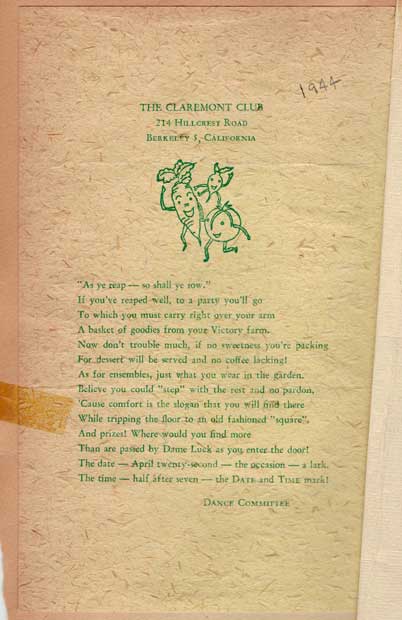 1944
THE CLAREMONT CLUB
214 HILLCREST ROAD
BERKELEY 5, CALIFORNIA
"As ye reap — so shall ye sow."
If you've reaped well, to a party you'll go
To which you must carry right over your arm
A basket of goodies from your Victory farm.
Now don't trouble much, if no sweetness you're packing
For dessert will be served and no coffee lacking!
As for ensembles, just what you wear in the garden.
Believe you could "step" with the rest and no pardon.
'Cause comfort is the slogan that you will find there
While tripping the floor to an old fashioned "square".
And prizes! Where would you find more
Than are passed by Dame Luck as you enter the door!
The date — April twenty-second — the occasion — a lark.
The time — half after seven — the DATE and TIME mark!
DANCE COMMITTEE